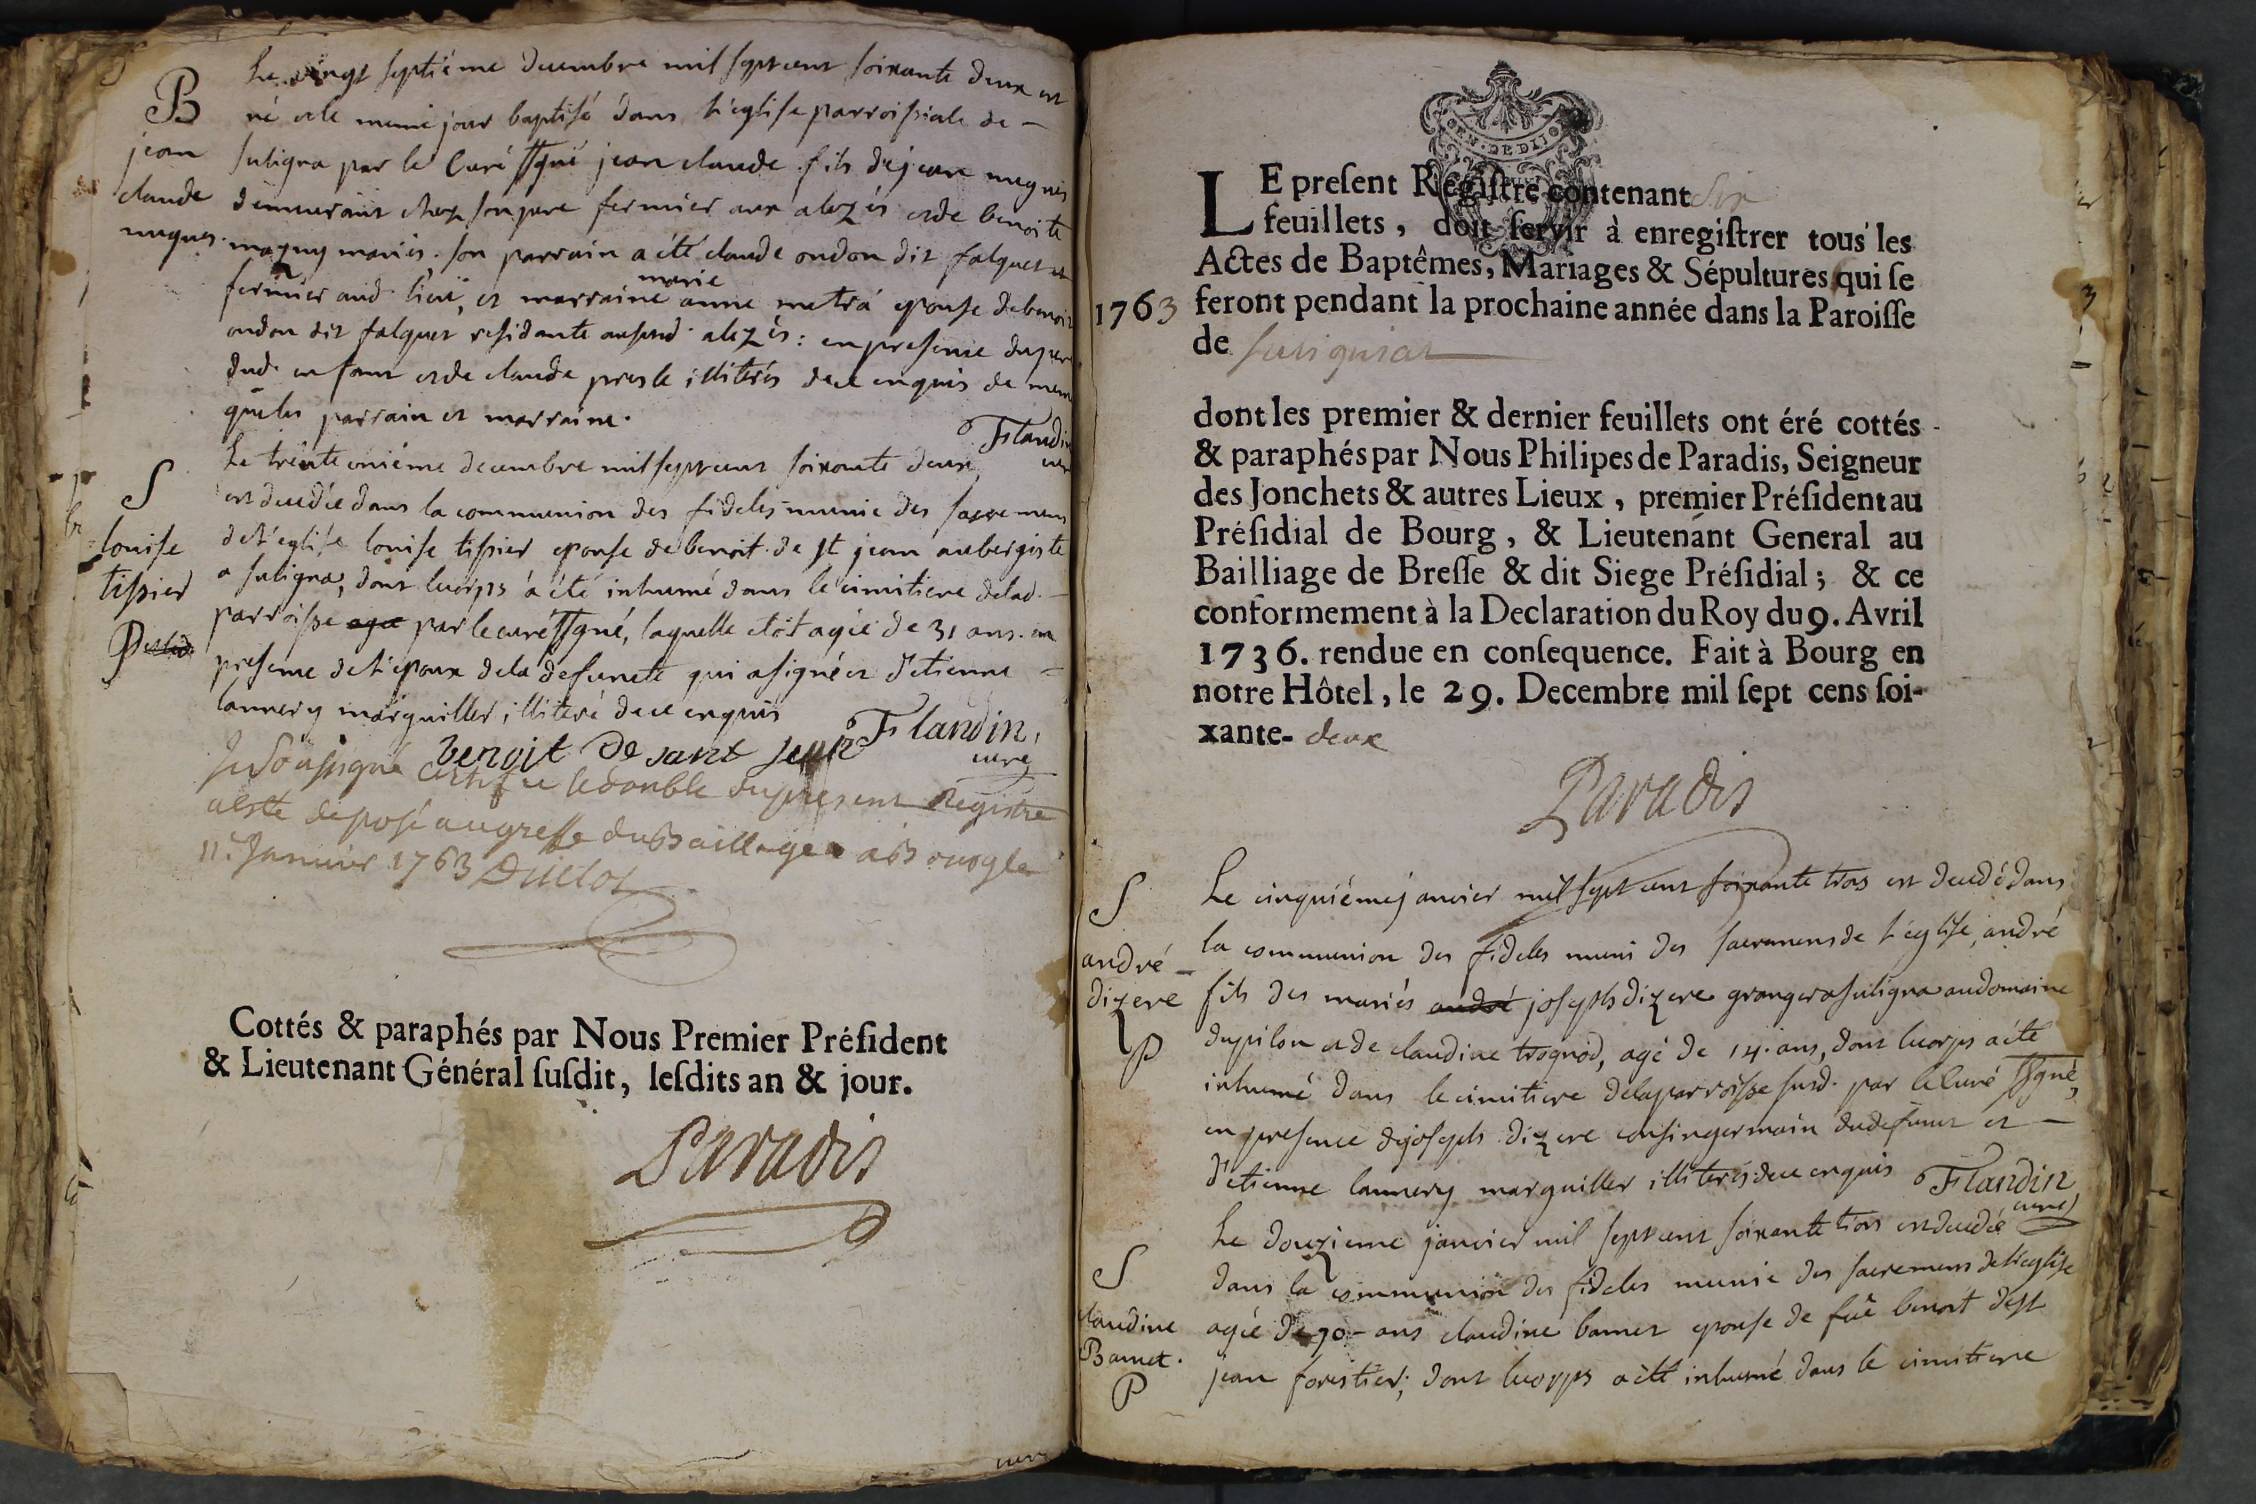 B
jean
claude
muguet.
Le vingt septiéme decembre mil sept cent soixante deux est
né et le meme jour baptisé dans l'eglise parroissiale de –
suligna par le Curé ssgné jean claude fils de jean
demeurant chez son pere fermier aux alezés et de benoite
maguy mariés. son parrain a été claude ondon dit falquet et
fermier aud. lieu, et marraine marie anne metra epouse de benoit
ondon dit falquet residante aususd. alezés : en presence du pere
dud. enfant et de claude presle illiterés de ce enquis de meme
que les parrain et marraine.
Flandin
curé
S
louise
tissier
Le trente uniéme decembre mil sept cent soixante deux
est decedée dans la communion des fideles munie des sacremens
de l'eglise louise tissier epouse de benoit de st jean aubergiste
a suligna, dont le corps a été inhumé dans le cimitiere de lad. –
parroisse agée par le curé ssgné, laquelle etoit agée de 31 ans. en
presence de l'epoux de la defunete qui a signé et d'etienne –
lannery marguiller illiteré de ce enquis
benoit de sant jean Flandin,
curé
Je soussigné certifie le double du present Registre
a esté deposé au greffe du Bailliage a Bourg le
11e. Janvier 1763 Duclos
Cottés & paraphés par Nous Premier Préſident
& Lieutenant Général ſuſdit, leſdits an & jour.
Paradis
GEN. DE DIJON
LE preſent Regiſtre contenant Six
feuillets, doit ſervir à enregiſtrer tous les
Actes de Baptêmes, Mariages & Sépultures qui ſe
1763 feront pendant la prochaine année dans la Paroiſſe
de Sulignat
dont les premier & dernier feuillets ont éré cottés
& paraphés par Nous Philipes de Paradis, Seigneur
des Jonchets & autres Lieux, premier Préſident au
Préſidial de Bourg, & Lieutenant General au
Bailliage de Breſſe & dit Siege Préſidial; & ce
conformement à la Declaration du Roy du 9. Avril
1736. rendue en conſequence. Fait à Bourg en
notre Hôtel, le 29. Decembre mil ſept cens ſoi-
xante- deux
Paradis
S
andré
dizere
P
Le cinquiéme janvier mil sept cent soixante trois est decedé dans
la communion des fideles muni des sacremens de l'eglise, andré
fils des mariés andré joseph dizere granger a suligna au domaine
du pilon et de claudine trognod, agé de 14. ans, dont le corps a été
inhumé dans le cimitiere de la parroisse susd. par le Curé ssgné,
en presence de joseph dizere cousin germain du defunt et –
d'etienne lannery marguiller illiterés de ce enquis Flandin
curé
S
claudine
Bamet.
P
Le douzieme janvier mil sept cent soixante trois est decedée
dans la communion des fideles munie des sacremens de l'eglise
agée de 70 – ans claudine bamet epouse de feu benoit de st
jean forestier; dont le corps a été inhumé dans le cimitiere